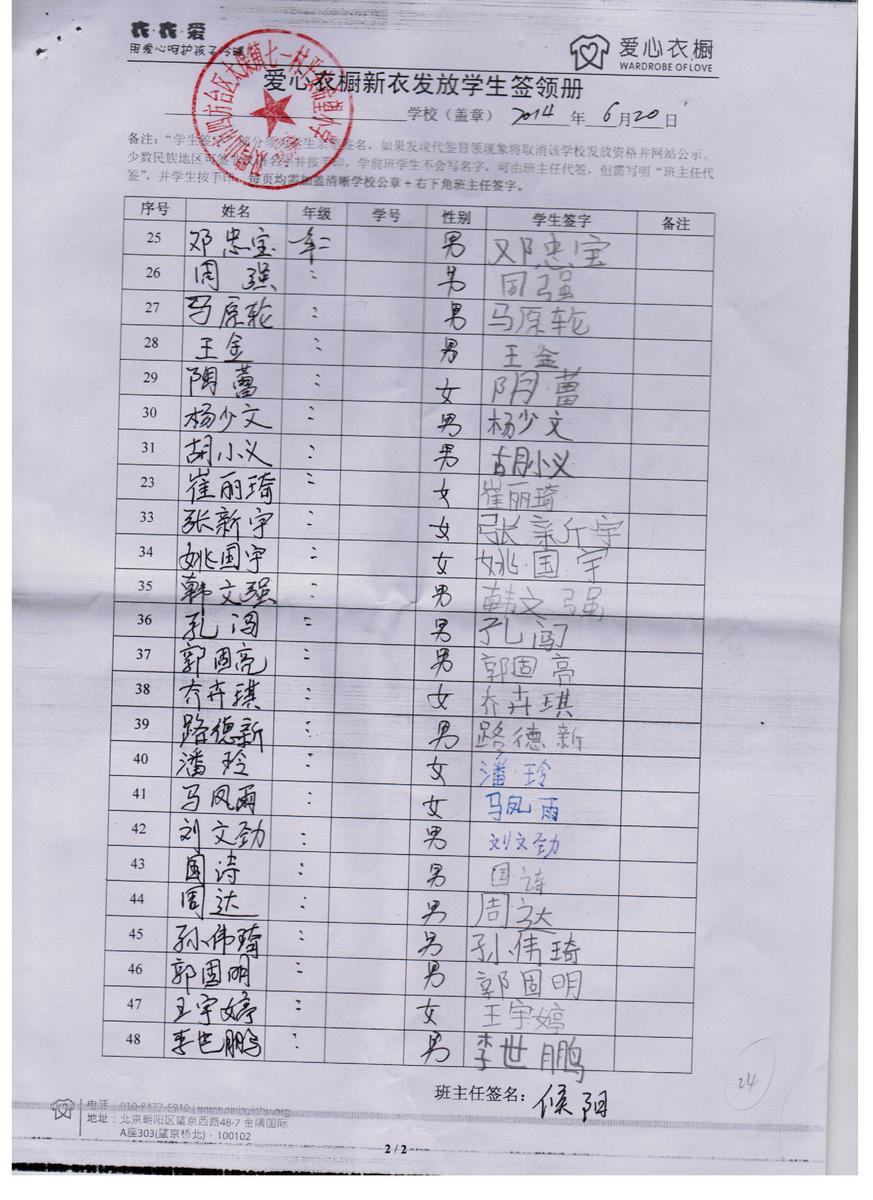 衣·衣·爱
用爱心呵护孩子冷暖
爱心衣橱
WARDROBE OF LOVE
爱心衣橱新衣发放学生签领册
学校（盖章） 2014 年 6月20日
备注：“学生签字”部分须由学生亲笔签名，如果发现代签冒领现象将取消该学校发放资格并网站公示。
少数民族地区可签本民族名字并按手印，学前班学生不会写名字，可由班主任代签，但需写明“班主任代
签”，并学生按手印。每页均需加盖清晰学校公章+右下角班主任签字。
序号 姓名 年级 学号 性别 学生签字 备注
25 邓忠宝 男 邓忠宝
26 周强 : 男 周强
27 马原轮 : 男 马原轮
28 王金 : 男 王金
29 陶蕾 : 女 陶蕾
30 杨少文 : 男 杨少文
31 胡小义 : 男 胡小义
23 崔丽琦 : 女 崔丽琦
33 张新宇 : 女 张新宇
34 姚国宇 : 女 姚国宇
35 韩文强 : 男 韩文强
36 孔闯 : 男 孔闯
37 郭固亮 : 男 郭固亮
38 乔卉琪 : 女 乔卉琪
39 路德新 : 男 路德新
40 潘玲 : 女 潘玲
41 马凤雨 : 女 马凤雨
42 刘文劲 : 男 刘文劲
43 国诗 : 男 国诗
44 周达 : 男 周达
45 孙伟琦 : 男 孙伟琦
46 郭固明 : 男 郭固明
47 王宇婷 : 女 王宇婷
48 李世鹏 : 男 李世鹏
班主任签名： 候阳
24
电话：010-8477-5910 |
地址：北京朝阳区望京西路48-7 金隅国际
A座303(望京桥北)·100102
2 / 2